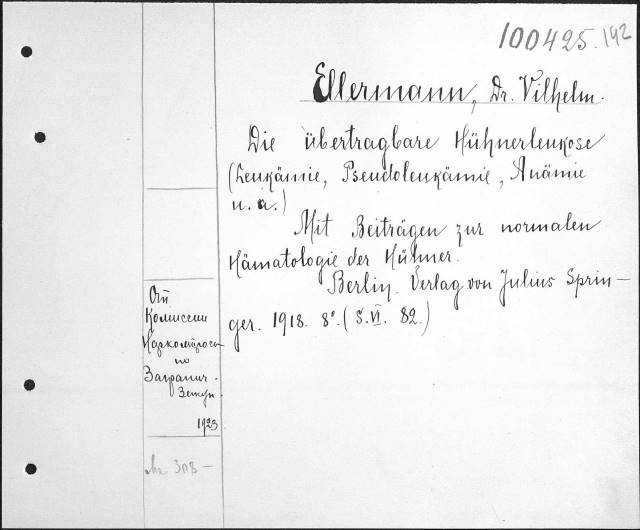 100425.142
Ellermann, Dr. Vilhelm.
Die übertragbare Hühnerleukose
(Leukämie, Pseudoleukämie, Anämie
u. a.)
Mit Beiträgen zur normalen
Hämatologie der Hühner.
Berlin. Verlag von Julius Sprin-
ger. 1918. 8°. (S. VI. 82.)
От
Комиссии
Наркомпроса
по
Загранич.
Закуп.
1923